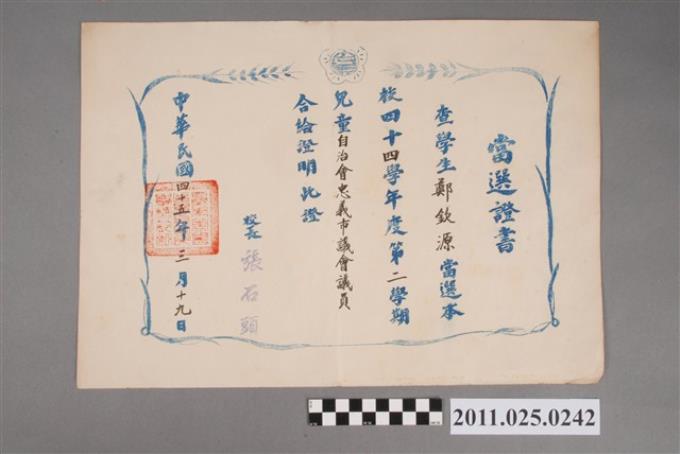 當選證書
查學生鄭欽源當選本
校四十四學年度第二學期
兒童自治會忠義市議會議員
合給證明此證
校長 張石頭
中華民國四十五年三月十九日
2011.025.0242